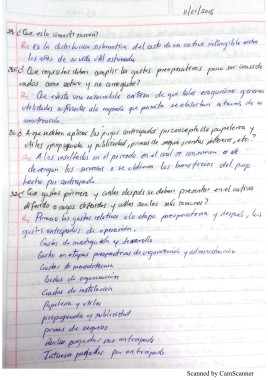 11/01/2018
29.¿ Que es la amortización?
R= Es la distribución sistematica del costo de un activo intangible entre
los años de su vida útil estimada
30.¿ Que requisitos deben cumplir los gastos preoperativos para ser considerados
como activo y no como gasto?
R= Que exista una razonable certeza de que van a generar
utilidades suficientes a la empresa que permita absorberlos a través de su
amortización.
31.¿ A que deben aplicarse los pagos anticipados por concepto de papelería y
útiles, propaganda y publicidad, primas de seguros, rentas, intereses, etc.?
R= A los resultados en el periodo en el cual se consumen o se
devenguen los servicios o se obtienen los beneficios del pago
hecho por anticipado.
32.¿ Que gastos primero y cuales después se deben presentar en el activo
diferido o cargos diferidos y cuáles son los más comunes?
R= Primero los gastos relativos a la etapa preoperatoria y después, los
gastos anticipados de operación.
Gastos de investigación y desarrollo
Gastos en etapas preoperativas de organización y administración
Gastos de mercadotecnia
Gastos de organización
Gastos de instalación
Papeleria y útiles
propaganda y publicidad
primas de seguros
Rentas pagadas por anticipado
Intereses pagados por anticipado
Scanned by CamScanner